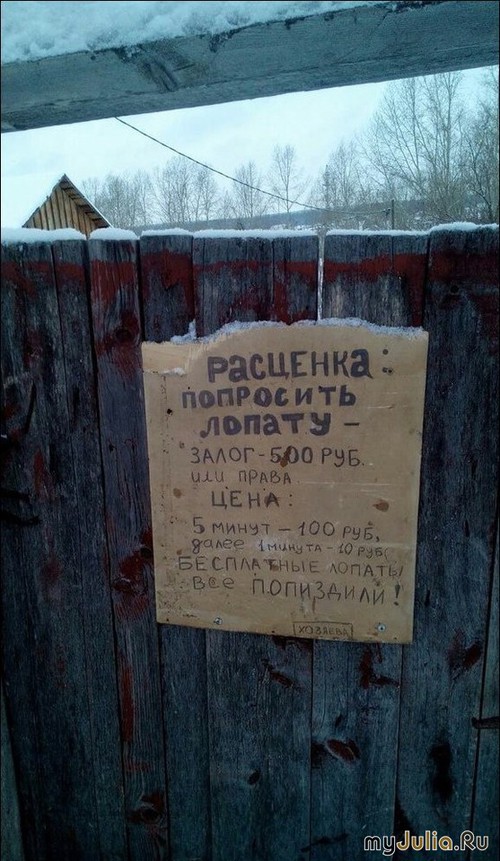 РАСЦЕНКА:
ПОПРОСИТЬ
ЛОПАТУ –
ЗАЛОГ - 500 РУБ.
или ПРАВА
ЦЕНА:
5 минут – 100 руб,
далее 1 минута - 10 руб,
БЕСПЛАТНЫЕ ЛОПАТЫ
Все ПОПИЗДИЛИ!
ХОЗЯЕВА
myJulia.Ru